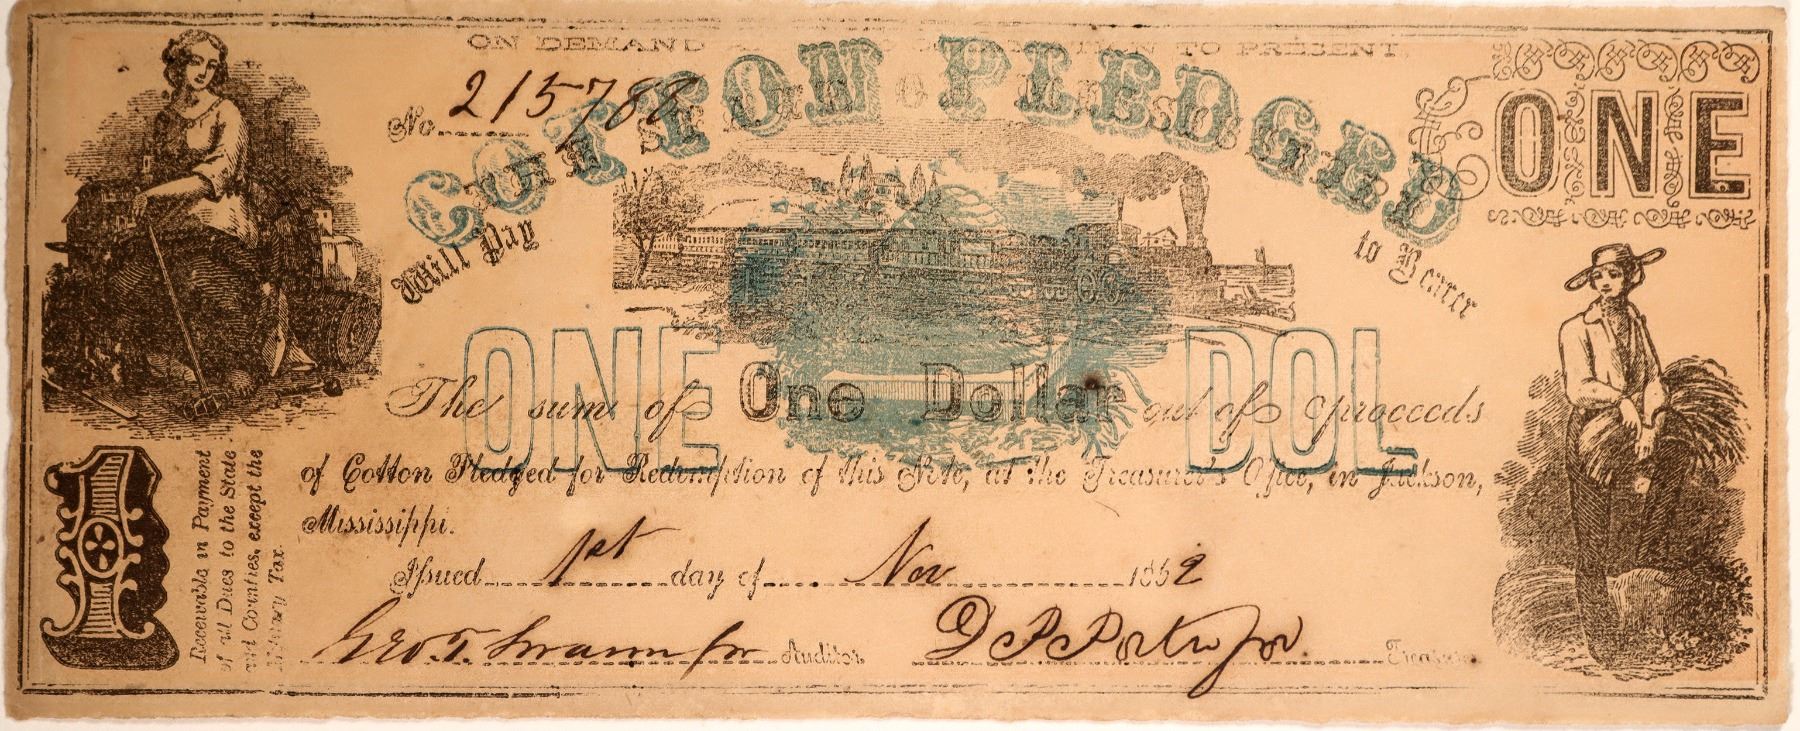 ON DEMAND
TO PRESENT
No. 215788
COTTON PLEDGED
Will Pay
to Bearer
ONE
ONE DOL
The sum of One Dollar out of proceeds
of Cotton Pledged for Redemption of this Note, at the Treasurer's Office, in Jackson,
Mississippi.
Issued 1st day of Nov 1862
Geo. T. Swann for Auditor
D P Porter Jr. Treasurer
1
Receivable in Payment
of all Dues to the State
and Counties, except the
Military Tax.